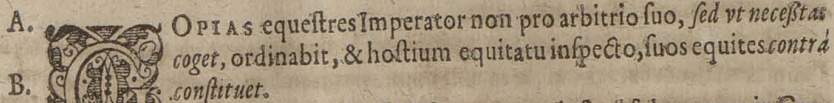 A. COPIAS equeſtres Imperator non pro arbitrio ſuo, ſed vt neceſſitas
coget, ordinabit, & hoſtium equitatu inſpecto, ſuos equites contrà
B. conſtituet.